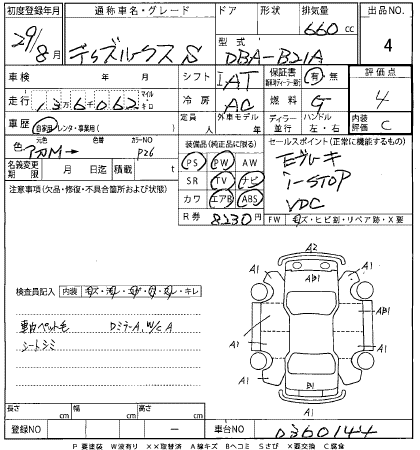 初度登録年月 通称車名・グレード ドア 形状 排気量 出品No.
29/8月 デイズルークス S 660 cc 4
型式 DBA-B21A
車検 年 月 シフト IAT 保証書 有 無 評価点 4
走行 13万6062 冷房 AC 燃料 G
車歴 自家用 レンタ・事業用( ) 定員 人 外車モデル ディーラー 並行 ハンドル 左・右 内装評価 C
色 元色 カラーNO P26
装備品(純正品に限る) セールスポイント(正常に機能するもの)
PS PW AW Eブレーキ
名義変更期限 月 日迄 積載 t SR TV ナビ i-STOP
注意事項(欠品・修復・不具合箇所および状態) カワ エアB ABS VDC
R券 8230円 FW キズ・ヒビ割・リペア跡・X要
検査員記入 内装 キズ・汚レ・コゲ・穴・スレ・キレ
車内ペット毛 DミラーA, W/C A
シートシミ
A2
A1 A1
AB1
A1 A1
A1 A1
A1 A1
B1
長さ cm 幅 cm 高さ cm
登録NO － 車台NO 0360144
P 要塗装 W波有り ××取替済 A線キズ Bヘコミ Sさび ×要交換 C腐食